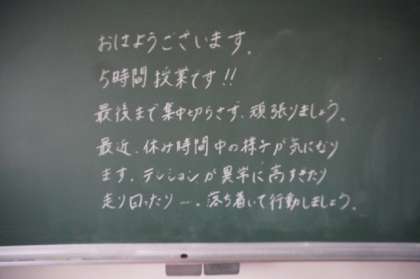 おはようございます。
5時間授業です!!
最後まで集中切らさず、頑張りましょう。
最近、休み時間中の様子が気になり
ます。テンションが異常に高すぎたり
走り回ったり…。落ち着いて行動しましょう。